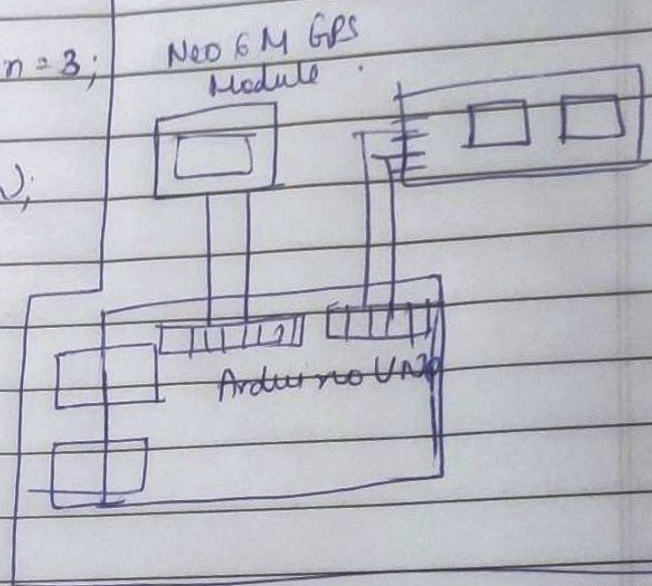 n = 3;
Neo 6M GPS
Module
Arduino UNO